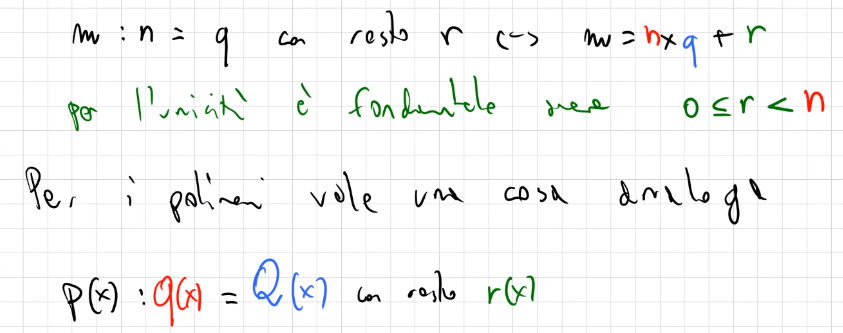 m : n = q con resto r <-> m = n × q + r
per l'unicità è fondamentale avere 0 ≤ r < n
Per i polinomi vale una cosa analoga
p(x) : q(x) = Q(x) con resto r(x)